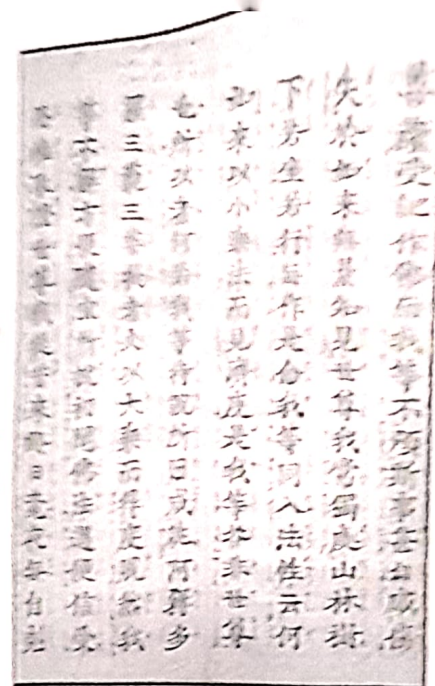 菩薩受記作佛而我等不預斯事甚自感傷
失於如來無量知見世尊我常獨處山林樹
下若坐若行每作是念我等同入法性云何
如來以小乘法而見濟度是我等咎非世尊
也所以者何若我等待說所因成就阿耨多
羅三藐三菩提者必以大乘而得度脫然我
等不解方便隨宜所說初聞佛法遇便信受
思惟取證世尊我從昔來終日竟夜每自剋